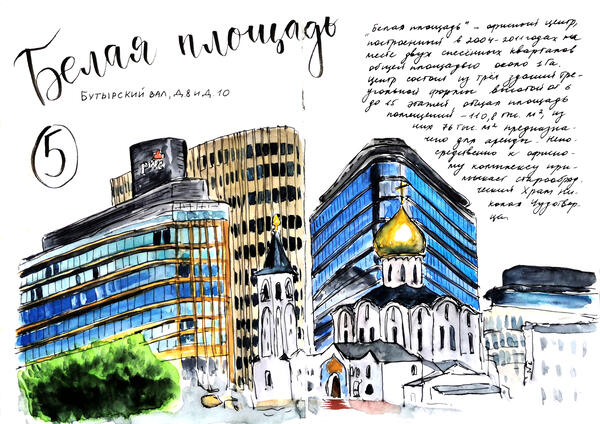 Белая площадь
Бутырский вал, д.8 и д.10
5
pwc
"Белая площадь" - офисный центр,
построенный в 2004-2011 годах на
месте двух снесённых кварталов
общей площадью около 1 Га.
Центр состоит из трёх зданий тре-
угольной формы высотой от 6
до 15 этажей общая площадь
помещений - 110,8 тыс. м², из
них 76 тыс. м² предназна-
чено для аренды. Непо-
средственно к офисно-
му комплексу при-
мыкает старообряд-
ческий Храм Ни-
колая Чудотвор-
ца.